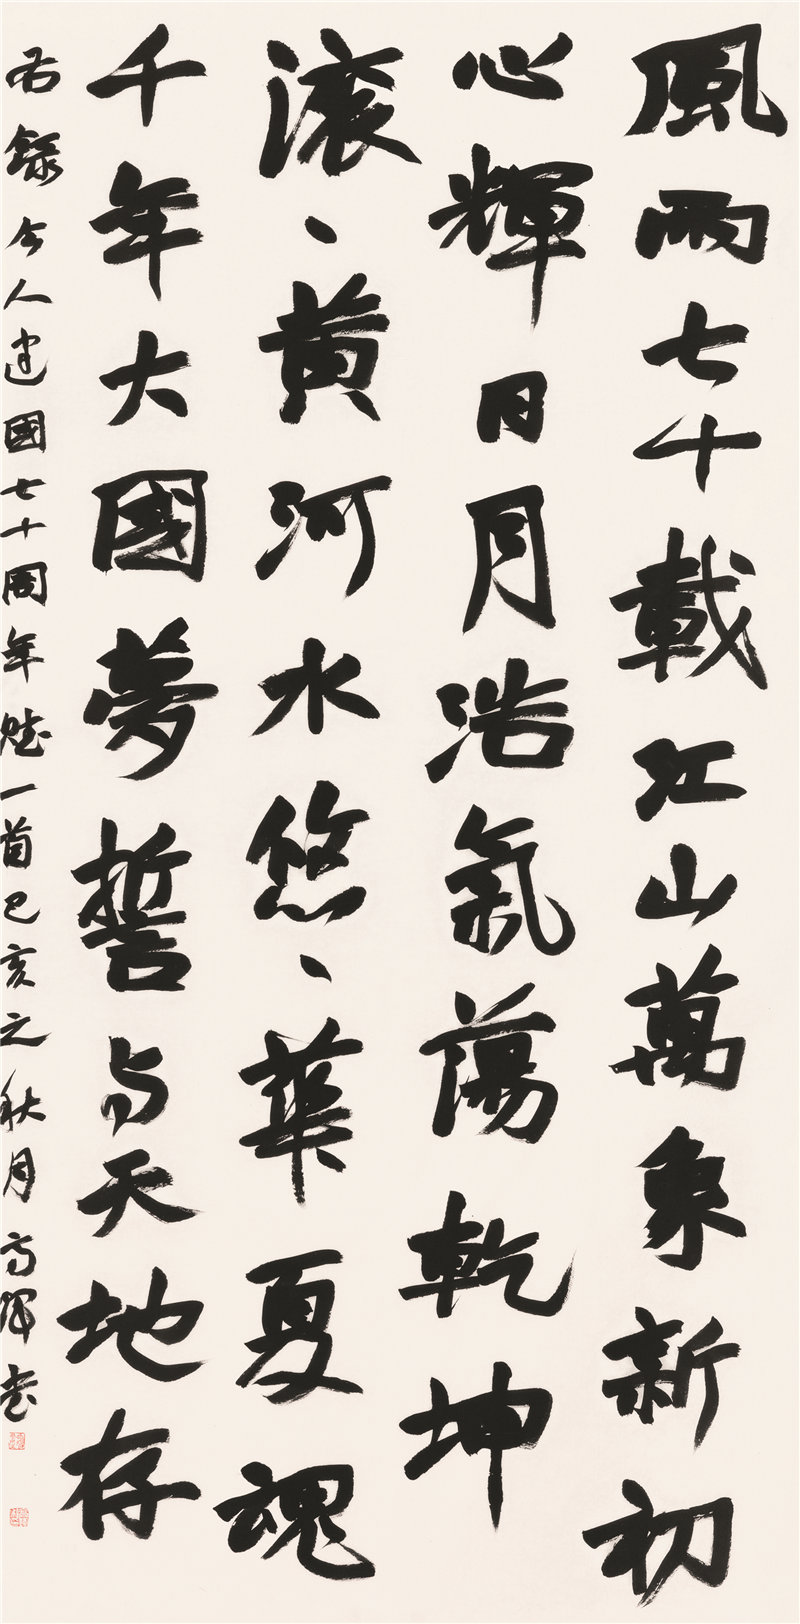 風雨七十載江山萬象新初
心輝日月浩氣蕩乾坤
滾〻黃河水悠〻華夏魂
千年大國夢誓与天地存
右錄今人建國七十周年賦一首己亥之秋月高輝书